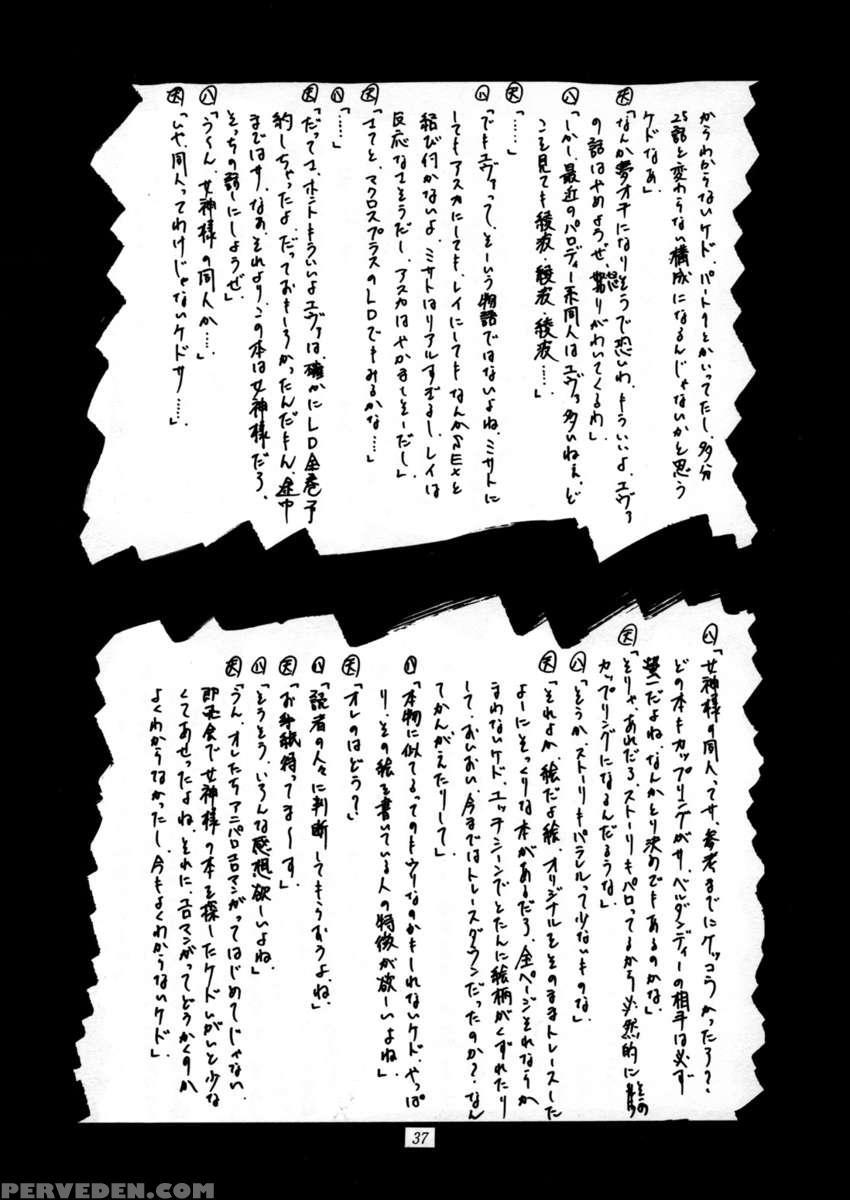 からわからないケド、パート1とかいってたし、多分
25話と変わらない構成になるんじゃないかと思う
ケドなあ」
天「なんか夢オチになりそうで恐いわ、もういいよ、エヴァ
の話はやめようぜ、怒りがわいてくるわ」
八「しかし、最近のパロディー系同人はエヴァ多いねぇ、ど
こを見ても綾波、綾波、綾波……」
天「……」
八「でもエヴァって、そーいう物語ではないよね、ミサトに
してもアスカにしても、レイにしてもなんかSEXと
結び付かないよ、ミサトはリアルすぎるし、レイは
反応なさそうだし、アスカはやかましそーだし」
天「さてと、マクロスプラスのLDでもみるかな……」
八「……」
天「だってさ、ホントもういいよエヴァは、確かにLD全巻予
約しちゃったよ、だっておもしろかったんだもん、途中
まではサ、なあ、それより、この本は女神様だろ、
そっちの話にしようぜ」
八「う〜ん、女神様の同人か……」
天「いや、同人ってわけじゃないケドサ……」
八「女神様の同人ってサ、参考までにケッコうかったろ?
どの本もカップリングがサ、ベルダンディーの相手は必ず
螢一だよね、なんかとり決めでもあるのかな」
天「そりゃ、あれだろ、ストーリーもパロってるから必然的にその
カップリングになるんだろうな」
八「そうか、ストーリーもパラレルって少ないものな」
天「それよか、絵だよ絵、オリジナルをそのままトレースした
よーにそっくりな本があるだろ、全ページそれならか
まわないケド、エッチシーンでとたんに絵柄がくずれたり
して、おいおい、今まではトレースダウンだったのか?なん
てかんがえたりして」
八「本物に似てるってのもウリなのかもしれないケド、やっぱ
り、その絵を書いている人の特徴が欲しいよね」
天「オレのはどう?」
八「読者の人々に判断してもらおうよね」
天「お手紙待ってま〜す」
八「そうそう、いろんな感想欲しいよね」
天「うん、オレたちアニパロエロマンガってはじめてじゃない、
即売会で女神様の本を探したケド、いがいと少な
くてあせったよね、それに、エロマンガってどうかくのか
よくわからなかったし、今もよくわからないケド」
37
PERVEDEN.COM